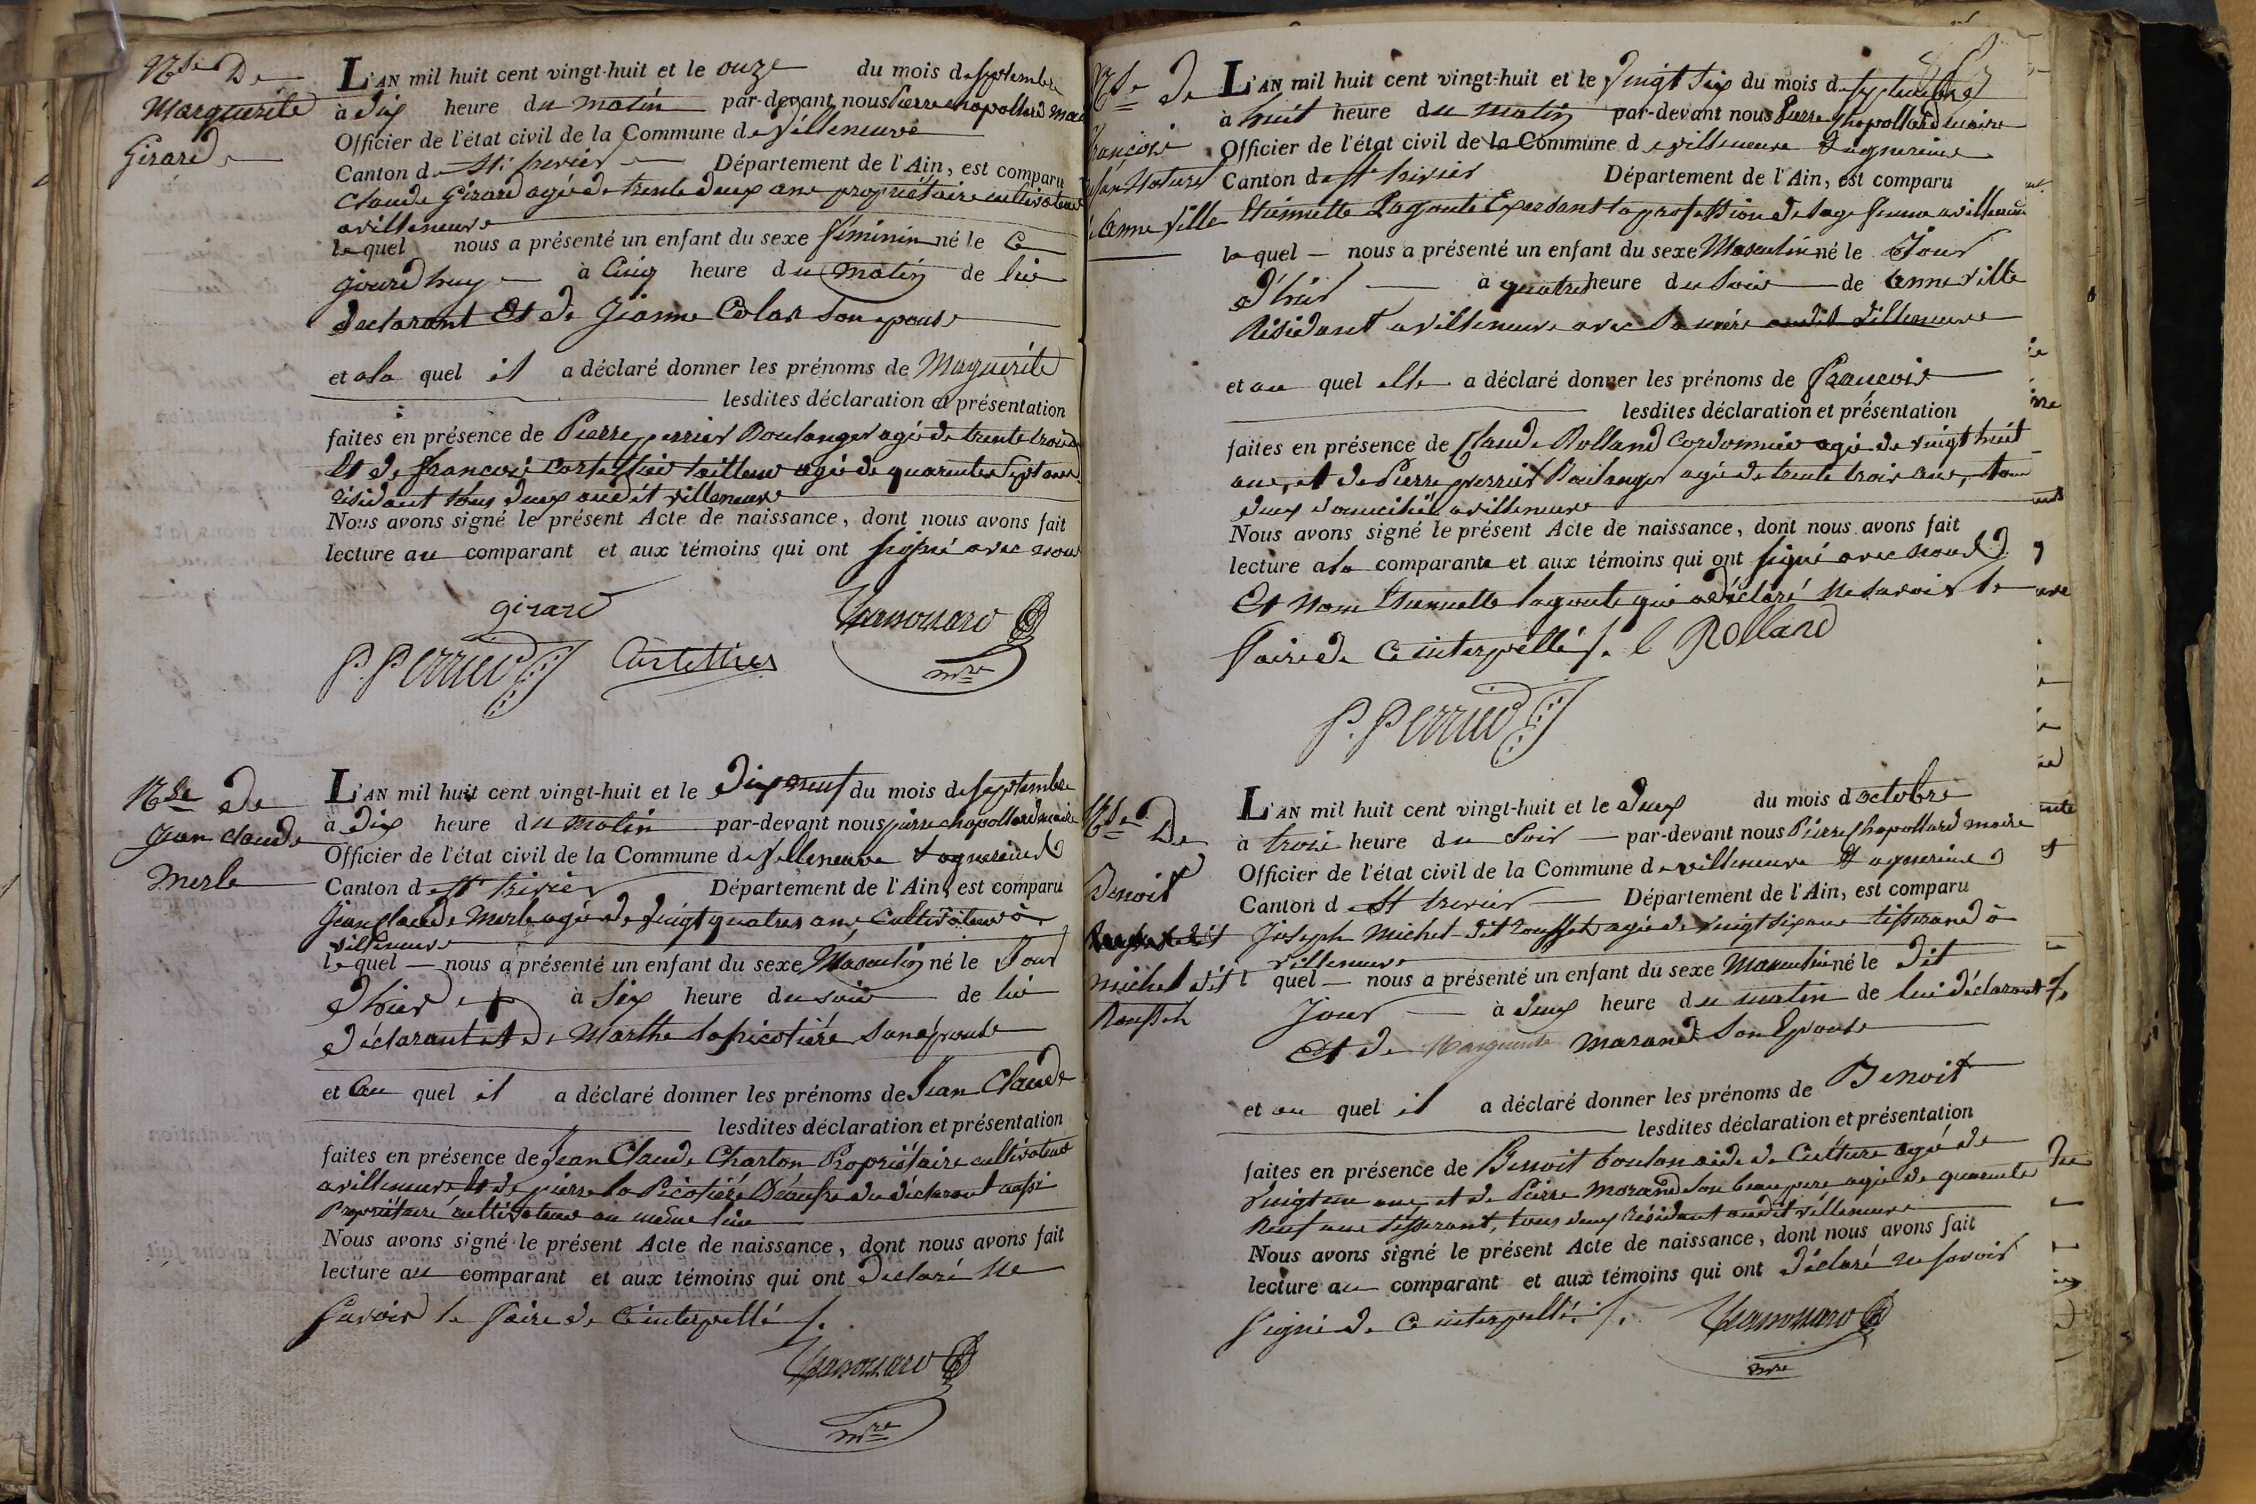 Nce De
Marguerite
Girard
L'AN mil huit cent vingt-huit et le onze du mois de septembre
à dix heure du matin par-devant nous Pierre chapollard maire
Officier de l'état civil de la Commune de Villeneuve
Canton de St. trivier Département de l'Ain, est comparu
Claude Girard agé de trente deux ans propriétaire cultivateur
a villeneuve
lequel nous a présenté un enfant du sexe féminin né le ce
jourdhuy à Cinq heure du matin de lui
declarant Et de Jeanne Colas son epouse
et a la quel il a déclaré donner les prénoms de Marguerite
lesdites déclaration et présentation
faites en présence de Pierre perrier Boulanger agé de trente trois ans
Et de francois Cortellier tailleur agé de quarantes sept ans
résidant tous deux audit villeneuve
Nous avons signé le présent Acte de naissance, dont nous avons fait
lecture au comparant et aux témoins qui ont signé avec nous
girard
P. Perrier
mre
Nce de
Jean Claude
Merle
L'AN mil huit cent vingt-huit et le Dix neuf du mois de septembre
à dix heure du matin par-devant nous pierre chapollard maire
Officier de l'état civil de la Commune de Villeneuve & agnereins
Canton de St trivier Département de l'Ain, est comparu
Jean Claude Merle agé de vingt quatres ans, Cultivateur à
villeneuve
lequel nous a présenté un enfant du sexe Masculin né le Jour
d'hier à six heure du soir de lui
déclarant et de Marthe lapicotière son épouse
et Au quel il a déclaré donner les prénoms de Jean Claude
lesdites déclaration et présentation
faites en présence de Jean Claude Charton Propriétaire cultivateur
a villeneuve Et de pierre la Picotière du déclarant aussi
Propriétaire cultivateur au même lieu
Nous avons signé le présent Acte de naissance, dont nous avons fait
lecture au comparant et aux témoins qui ont declaré Ne
savoir le faire de Ce interpellé
mre
Nce de
françois
Anne Ville
L'AN mil huit cent vingt-huit et le Vingt six du mois de septembre
à huit heure du matin par-devant nous Pierre Chapollard maire
Officier de l'état civil de la Commune de villeneuve & agnereins
Canton de St trivier Département de l'Ain, est comparu
Etiennette Lagoute Exerçant la profession de sage femme a villeneuve
laquel nous a présenté un enfant du sexe Masculin né le Jour
d'hier à quatre heure du soir de Anne Ville
Résidant a villeneuve avec sa mère audit Villeneuve
et au quel elle a déclaré donner les prénoms de François
lesdites déclaration et présentation
faites en présence de Claude Rolland Cordonnier agé de vingt huit
ans, et de Pierre perrier Boulanger agé de trente trois ans, tous
deux domiciliés a villeneuve
Nous avons signé le présent Acte de naissance, dont nous avons fait
lecture a la comparante et aux témoins qui ont signé avec nous
Et Non Etiennette lagoute qui a déclaré Ne savoir le
faire de Ce interpellé C Rolland
P. Perrier
Nce De
Benoit
Michel dit
Rousset
L'AN mil huit cent vingt-huit et le deux du mois d octobre
à trois heure du soir par-devant nous Pierre Chapollard maire
Officier de l'état civil de la Commune de villeneuve & agnereins
Canton d St trivier Département de l'Ain, est comparu
Joseph Michel dit rousset agé de vingt six ans tisserand à
villeneuve
l quel nous a présenté un enfant du sexe Masculin né le dit
Jour à deux heure du matin de lui déclarant
Et de Marguerite Morand son Epouse
et au quel il a déclaré donner les prénoms de Benoit
lesdites déclaration et présentation
faites en présence de Benoit toulon aide de Culture agé de
vingt un ans, et de Pierre Morand son beau pere agé de quarante
Neuf ans tisserant, tous deux Résidant audit villeneuve
Nous avons signé le présent Acte de naissance, dont nous avons fait
lecture au comparant et aux témoins qui ont déclaré ne savoir
signé de Ce interpellé
mre